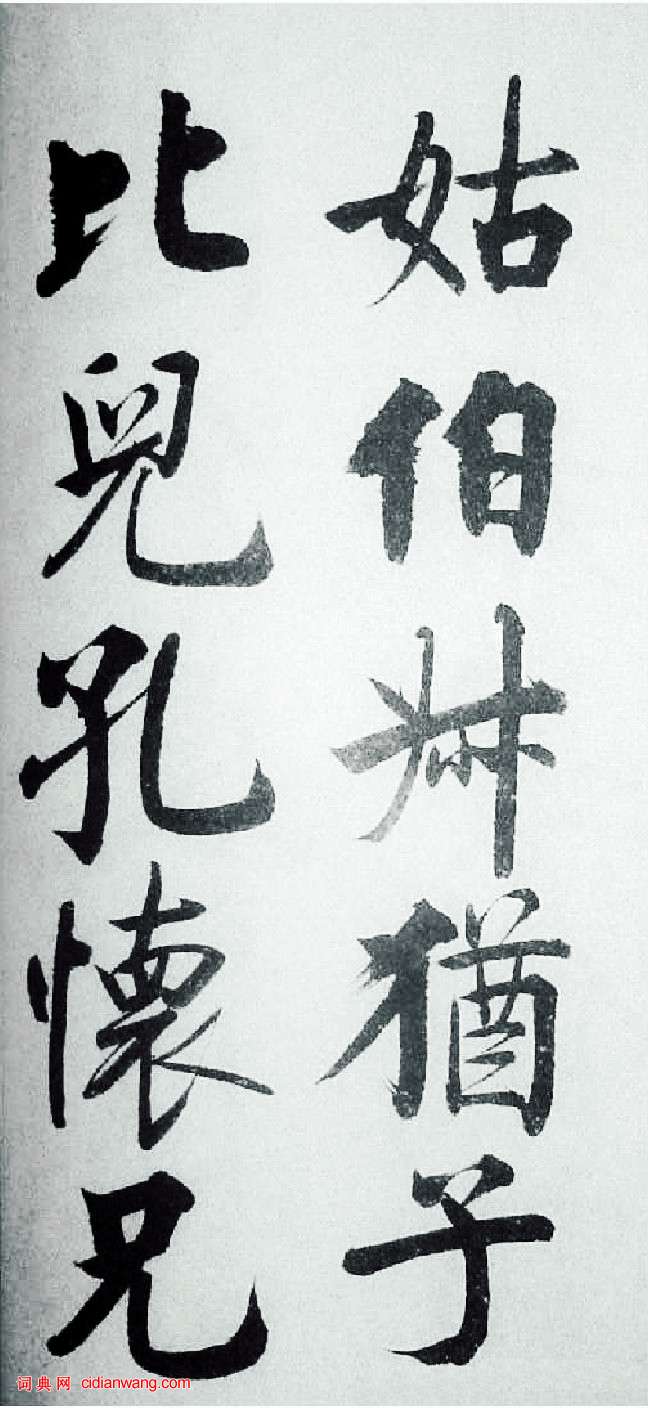 姑伯叔猶子
比兒孔懷兄
词典网 cidianwang.com